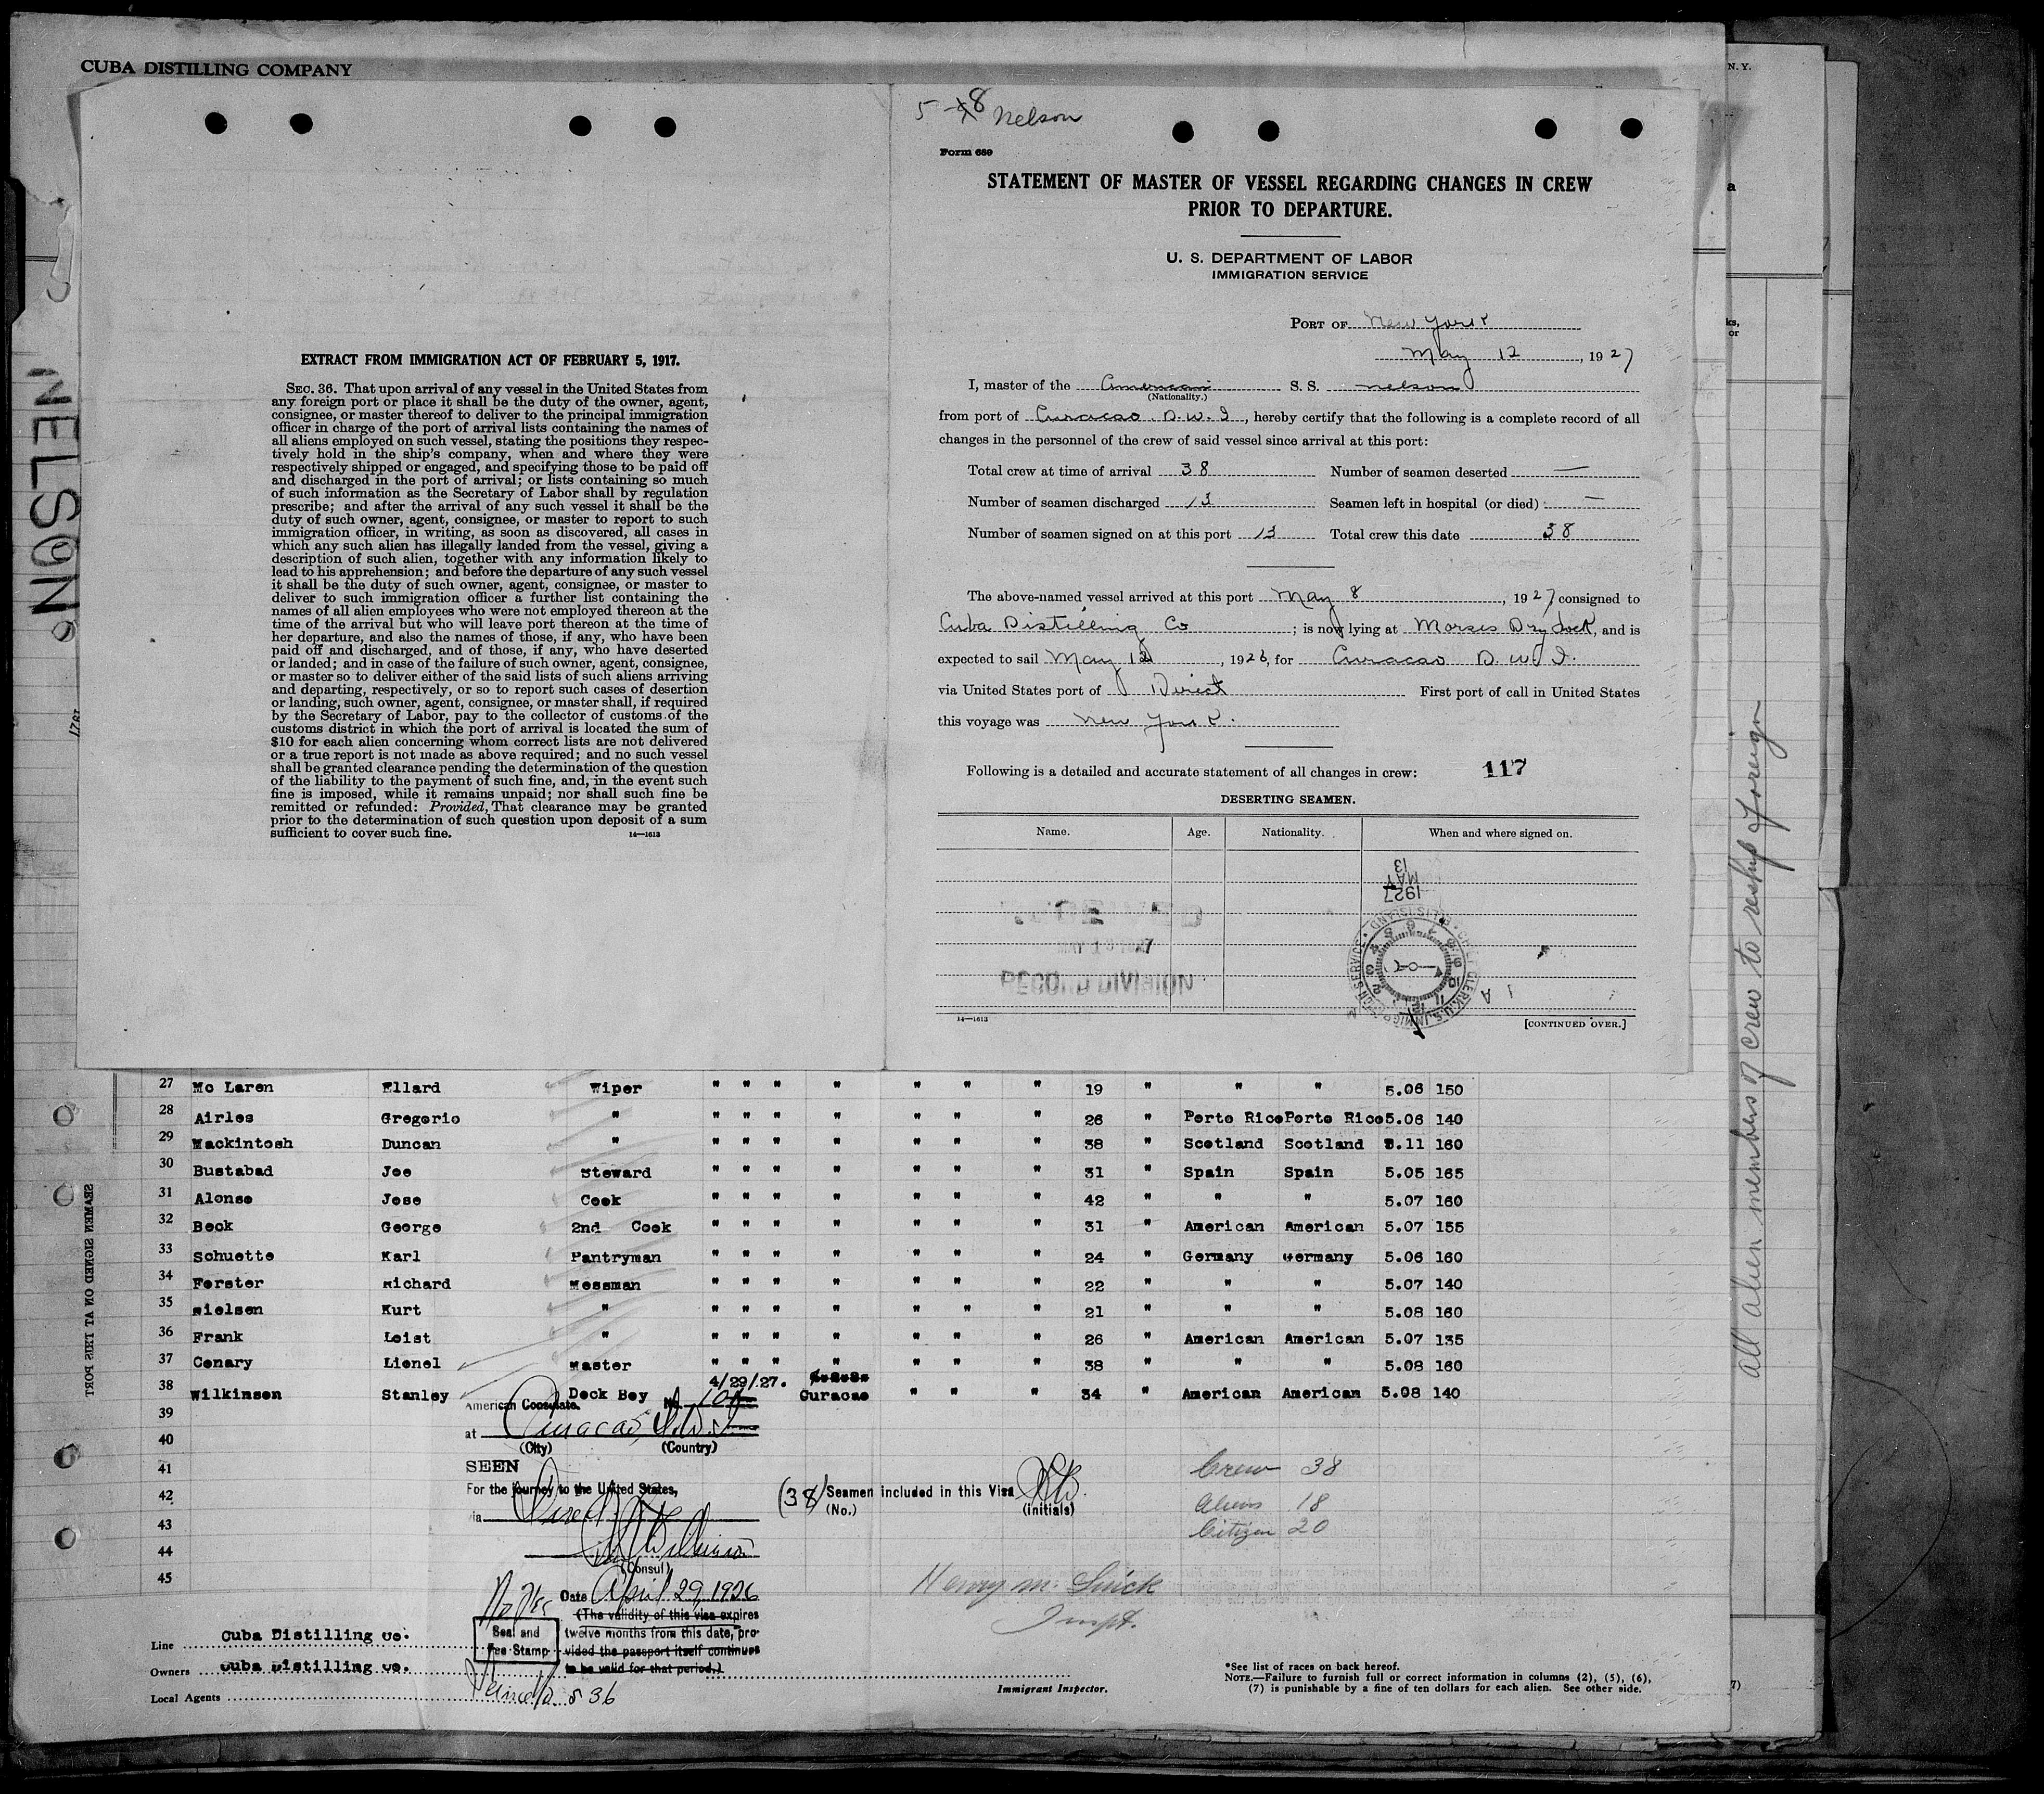 CUBA DISTILLING COMPANY
N. Y.
5-8 Nelson
Form 689
STATEMENT OF MASTER OF VESSEL REGARDING CHANGES IN CREW
PRIOR TO DEPARTURE.
U. S. DEPARTMENT OF LABOR
IMMIGRATION SERVICE
PORT OF New York
May 12, 1927
I, master of the American S. S. Nelson
(Nationality.)
from port of Curacao D.W.I, hereby certify that the following is a complete record of all
changes in the personnel of the crew of said vessel since arrival at this port:
Total crew at time of arrival 38 Number of seamen deserted —
Number of seamen discharged 13 Seamen left in hospital (or died) —
Number of seamen signed on at this port 13 Total crew this date 38
The above-named vessel arrived at this port May 8, 1927 consigned to
Cuba Distilling Co; is now lying at Morses Dry dock, and is
expected to sail May 12, 1926, for Curacao D. W. I.
via United States port of Direct First port of call in United States
this voyage was New York.
Following is a detailed and accurate statement of all changes in crew: 117
DESERTING SEAMEN.
Name. Age. Nationality. When and where signed on.
1927
MAY
13
RECORD DIVISION
14—1613
[CONTINUED OVER.]
EXTRACT FROM IMMIGRATION ACT OF FEBRUARY 5, 1917.
SEC. 36. That upon arrival of any vessel in the United States from
any foreign port or place it shall be the duty of the owner, agent,
consignee, or master thereof to deliver to the principal immigration
officer in charge of the port of arrival lists containing the names of
all aliens employed on such vessel, stating the positions they respec-
tively hold in the ship's company, when and where they were
respectively shipped or engaged, and specifying those to be paid off
and discharged in the port of arrival; or lists containing so much
of such information as the Secretary of Labor shall by regulation
prescribe; and after the arrival of any such vessel it shall be the
duty of such owner, agent, consignee, or master to report to such
immigration officer, in writing, as soon as discovered, all cases in
which any such alien has illegally landed from the vessel, giving a
description of such alien, together with any information likely to
lead to his apprehension; and before the departure of any such vessel
it shall be the duty of such owner, agent, consignee, or master to
deliver to such immigration officer a further list containing the
names of all alien employees who were not employed thereon at the
time of the arrival but who will leave port thereon at the time of
her departure, and also the names of those, if any, who have been
paid off and discharged, and of those, if any, who have deserted
or landed; and in case of the failure of such owner, agent, consignee,
or master so to deliver either of the said lists of such aliens arriving
and departing, respectively, or so to report such cases of desertion
or landing, such owner, agent, consignee, or master shall, if required
by the Secretary of Labor, pay to the collector of customs of the
customs district in which the port of arrival is located the sum of
$10 for each alien concerning whom correct lists are not delivered
or a true report is not made as above required; and no such vessel
shall be granted clearance pending the determination of the question
of the liability to the payment of such fine, and, in the event such
fine is imposed, while it remains unpaid; nor shall such fine be
remitted or refunded: Provided, That clearance may be granted
prior to the determination of such question upon deposit of a sum
sufficient to cover such fine. 14—1613
NELSON
27 Mc Laren Ellard Wiper " " " " " " " 19 " " " 5.06 150
28 Airles Gregorio " " " " " " " " 26 " Porto Rico Porto Rico 5.06 140
29 Mackintosh Duncan " " " " " " " " 38 " Scotland Scotland 5.11 160
30 Bustabad Joe Steward " " " " " " " 31 " Spain Spain 5.05 165
31 Alonso Jose Cook " " " " " " " 42 " " " 5.07 160
32 Beck George 2nd Cook " " " " " " " 31 " American American 5.07 155
33 Schuette Karl Pantryman " " " " " " " 24 " Germany Germany 5.06 160
34 Forster Richard Messman " " " " " " " 22 " " " 5.07 140
35 Nielsen Kurt " " " " " " " " 21 " " " 5.08 160
36 Frank Leist " " " " " " " " 26 " American American 5.07 135
37 Conary Lionel Master " " " " " " " 38 " " " 5.08 160
38 Wilkinson Stanley Deck Boy 4/29/27. Curacao " " " 34 " American American 5.08 140
39
40
41
42
43
44
45
American Consulate No. 101
at Curacao, D.W.I
(City) (Country)
SEEN
For the journey to the United States,
via Direct
(Consul)
Date April 29, 1926
(The validity of this visa expires
twelve months from this date, pro-
vided the passport itself continues
to be valid for that period.)
No Fee
Seal and
Fee Stamp
(38) Seamen included in this Visa
(No.) (initials)
Crew 38
Aliens 18
Citizen 20
Henry M.
Inspt.
Line Cuba Distilling Co.
Owners Cuba Distilling Co.
Local Agents
Immigrant Inspector.
*See list of races on back hereof.
NOTE.—Failure to furnish full or correct information in columns (2), (5), (6),
(7) is punishable by a fine of ten dollars for each alien. See other side.
SEAMEN SIGNED ON AT THIS PORT
All alien members of crew to reship foreign